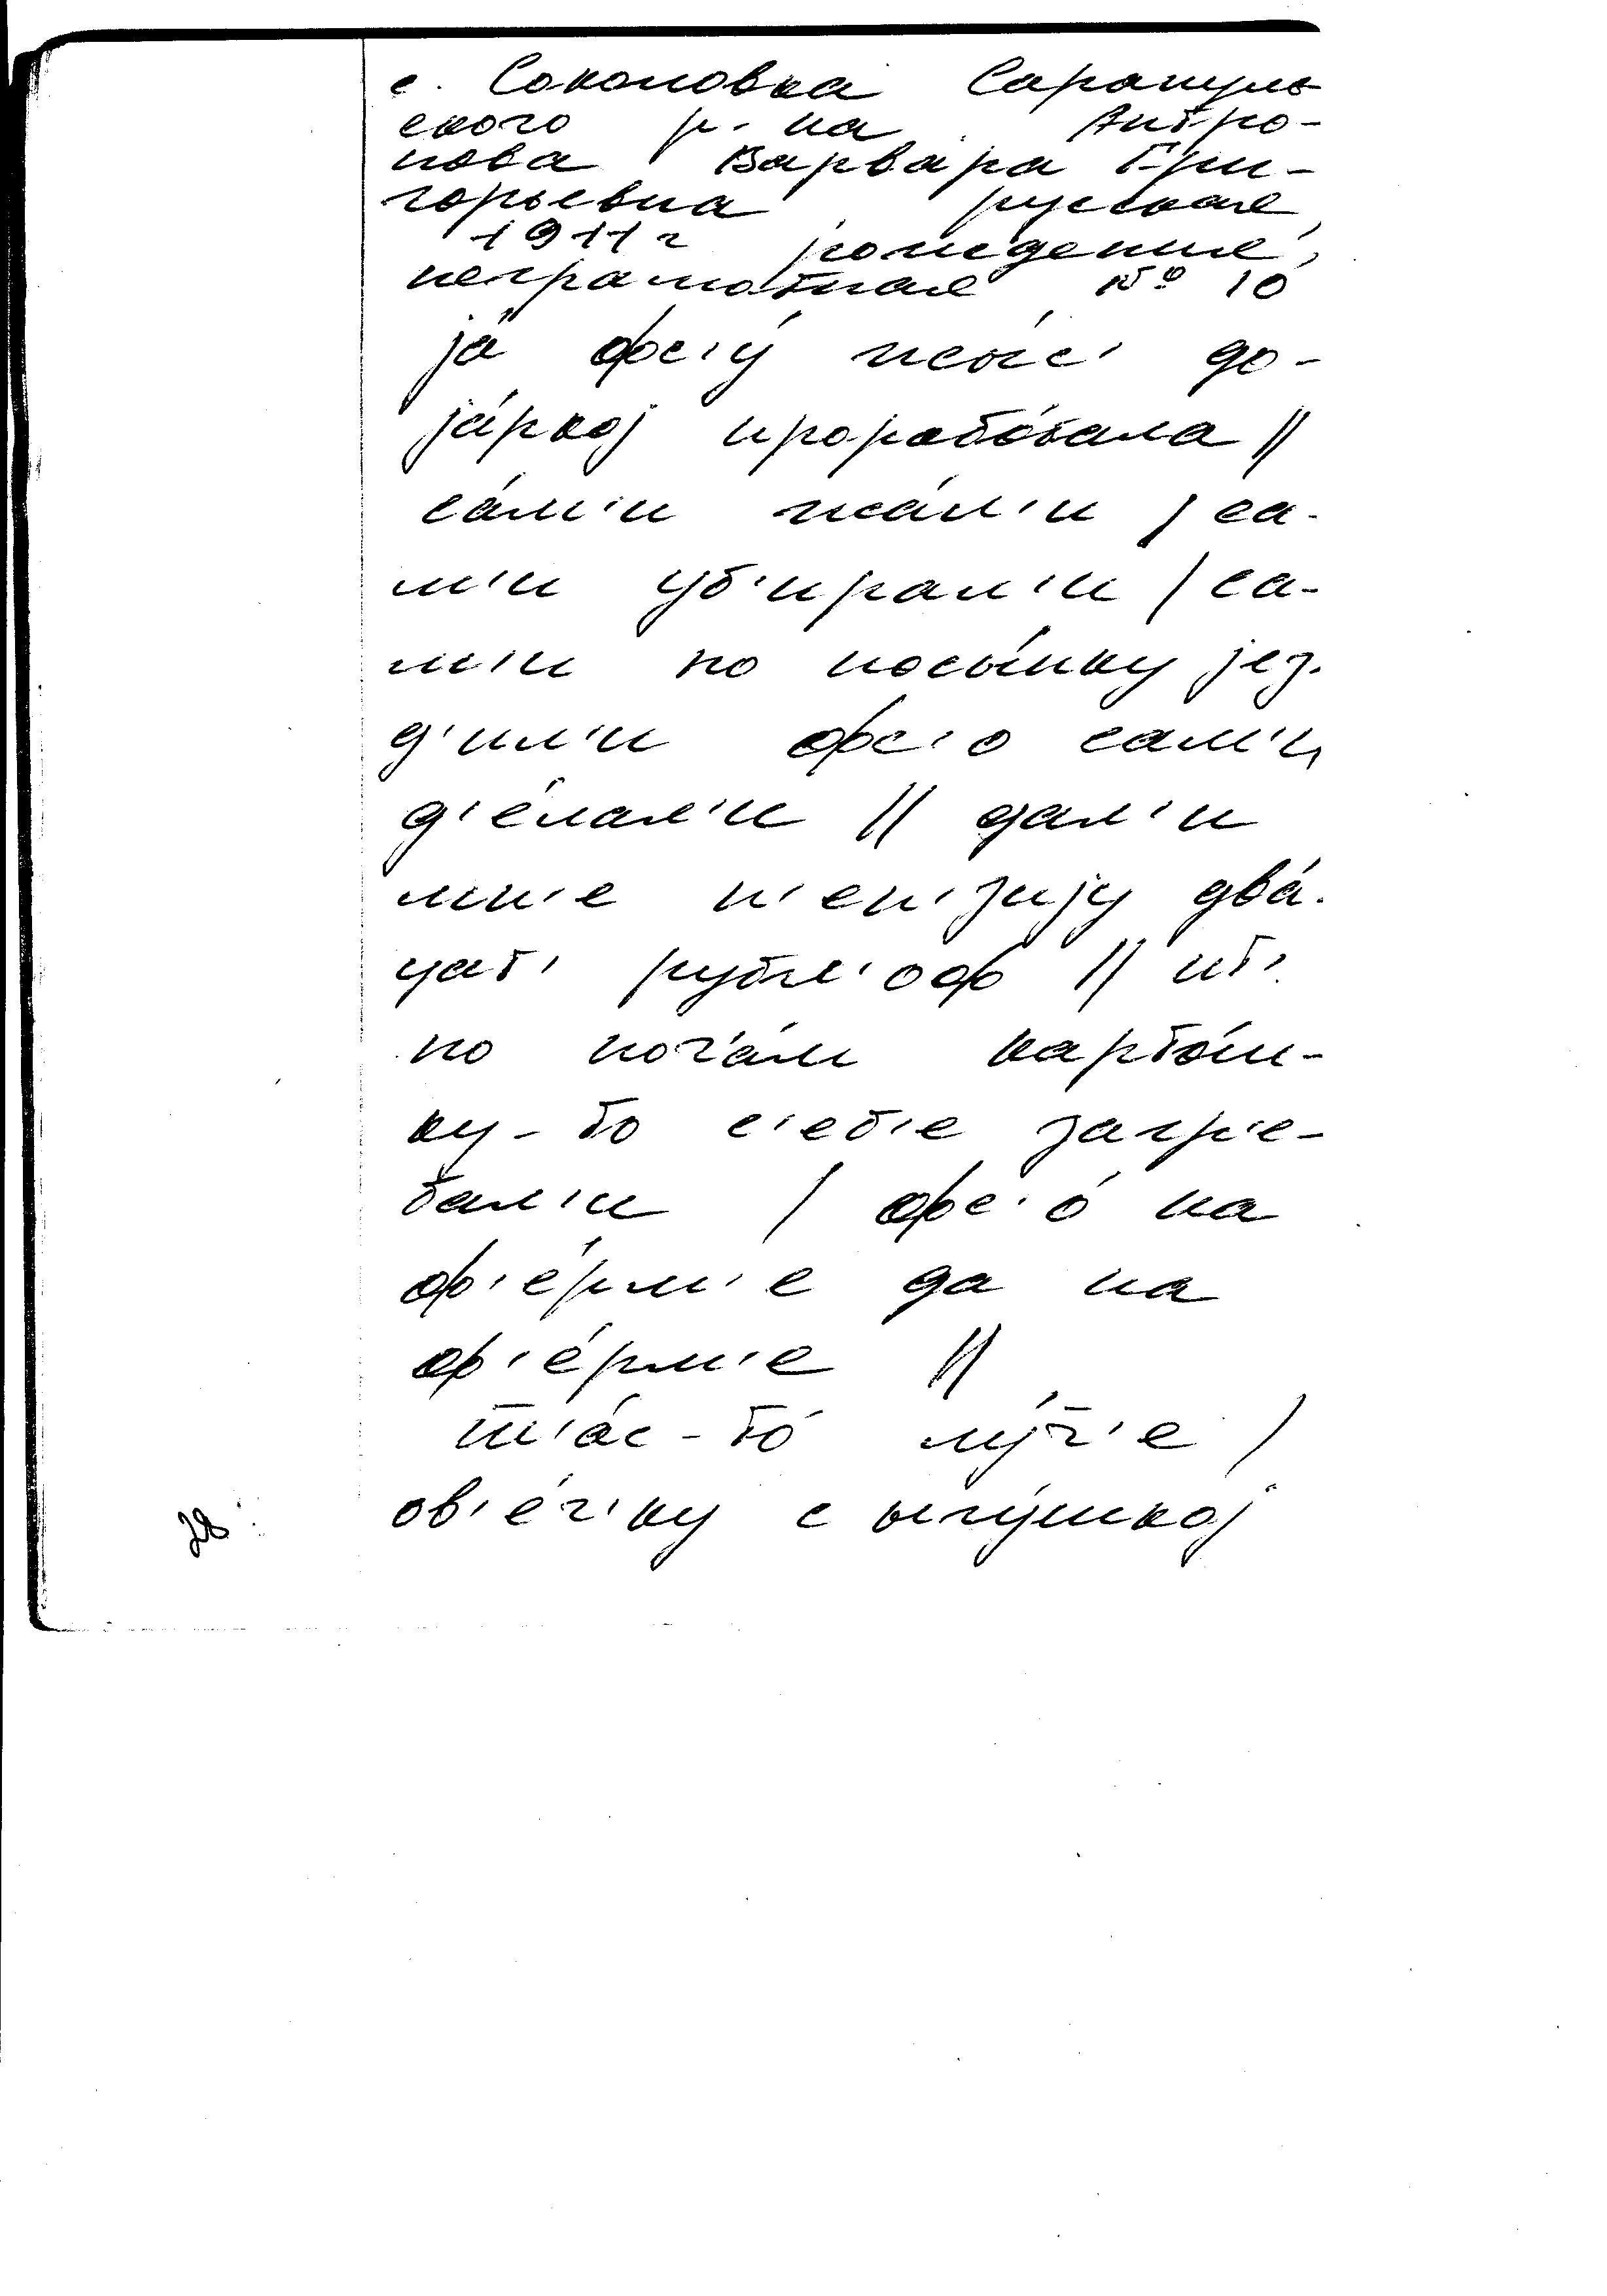 с. Соколовка Сарапуль
ского р-на. Антро-
пова Варвара Гри-
горьевна русская,
1911 г рождения,
неграмотная № 10
jа́ фс'у́ жы́с' до-
jа́ркоj проробо́тала ||
са́м'и жа́л'и / са-
м'и уб'ирал'и / са-
м'и по посы́пку jез-
д'ил'и фс'о сам'и
д'е́лал'и || дал'и
мн'е п'ен'зиjу два́-
цат' рубл'оф || ит'
по ноч'а́м карто́ш-
ку-то с'еб'е загр'е-
бал'и / фс'о́ на
ф'е́рм'е да на
ф'е́рм'е ||
ш'а́с-то́ лу́ч'е /
ов'е́ч'ку с ягу́шкоj
28